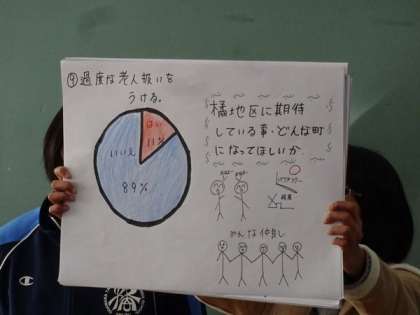 ⑨過度な老人扱いを
うける。
はい
11%
いいえ
89%
橘地区に期待
している事・どんな町
になってほしいか
みんな仲良し